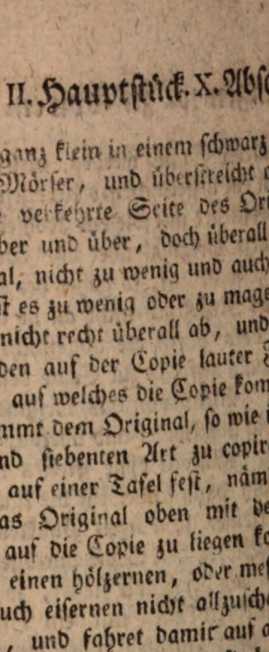 II. Hauptstück. X. Abs
ganz klein in einem schwarz
Mörser, und überstreicht
verkehrte Seite des Ori
ber und über, doch überall
al, nicht zu wenig und auch
st es zu wenig oder zu mage
nicht recht überall ab, und
den auf der Copie lauter
auf welches die Copie kom
mmt dem Original, so wie
nd siebenten Art zu copir
auf einer Tafel fest, näm
as Original oben mit de
auf die Copie zu liegen ko
einen hölzernen, oder me
uch eisernen nicht allzusch
, und fahret damit auf